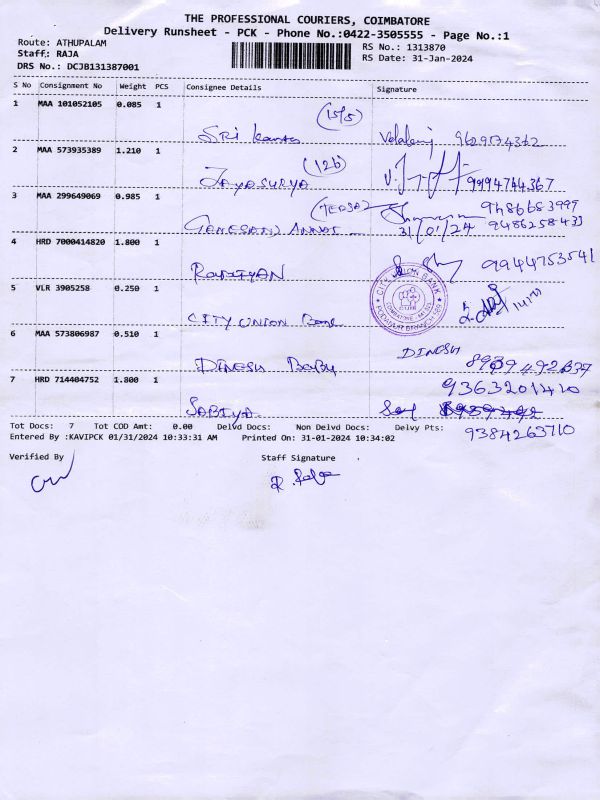 THE PROFESSIONAL COURIERS, COIMBATORE
Delivery Runsheet - PCK - Phone No.:0422-3505555 - Page No.:1
Route: ATHUPALAM RS No.: 1313870
Staff: RAJA RS Date: 31-Jan-2024
DRS No.: DCJB131387001
S No Consignment No Weight PCS Consignee Details Signature
1 MAA 101052105 0.085 1
Sri 9629174362
2 MAA 573935389 1.210 1 (126)
JAYASURYA 9994744367
3 MAA 299649069 0.985 1 9486683999
GANESAN 31/01/24 9486258433
4 HRD 7000414820 1.800 1
9944753541
5 VLR 3905258 0.250 1
CITY UNION BANK
CITY UNION Bank
6 MAA 573806987 0.510 1 DINESH
DINESH Babu
7 HRD 714404752 1.800 1 9363201410
SABIYA
Tot Docs: 7 Tot COD Amt: 0.00 Delvd Docs: Non Delvd Docs: Delvy Pts: 9384263710
Entered By :KAVIPCK 01/31/2024 10:33:31 AM Printed On: 31-01-2024 10:34:02
Verified By Staff Signature